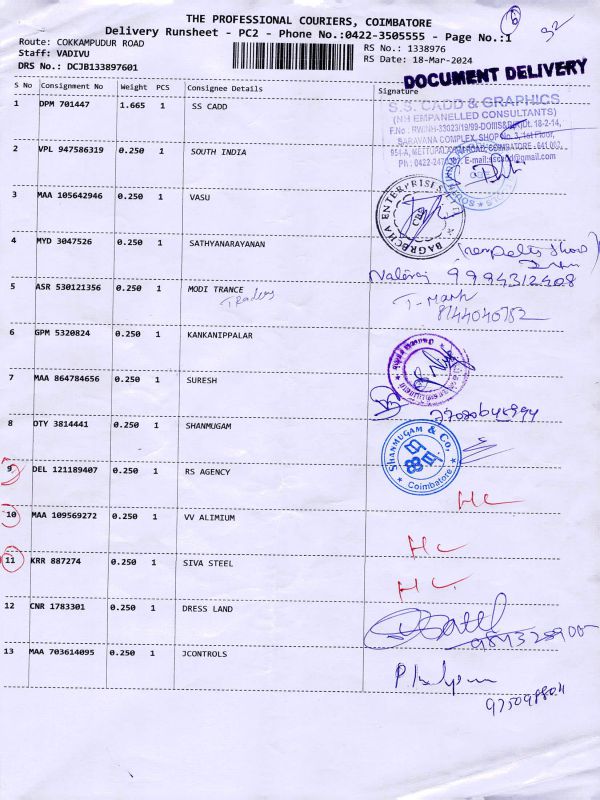 THE PROFESSIONAL COURIERS, COIMBATORE
Delivery Runsheet - PC2 - Phone No.:0422-3505555 - Page No.:1
6
32
Route: COKKAMPUDUR ROAD
Staff: VADIVU
DRS No.: DCJB133897601
RS No.: 1338976
RS Date: 18-Mar-2024
DOCUMENT DELIVERY
S No Consignment No Weight PCS Consignee Details Signature
1 DPM 701447 1.665 1 SS CADD
S.S. CADD & GRAPHICS
(NH EMPANELLED CONSULTANTS)
SARAVANA COMPLEX, SHOP No. 3, 1st Floor,
COIMBATORE - 641 002.
E-mail:sscadd@gmail.com
2 VPL 947586319 0.250 1 SOUTH INDIA
3 MAA 105642946 0.250 1 VASU
BAGRECHA ENTERPRISES
CBE
4 MYD 3047526 0.250 1 SATHYANARAYANAN
Nataraj 9994312408
5 ASR 530121356 0.250 1 MODI TRANCE
Traders
T-Mark
8144040752
6 GPM 5320824 0.250 1 KANKANIPPALAR
7 MAA 864784656 0.250 1 SURESH
8 DTY 3814441 0.250 1 SHANMUGAM
SHANMUGAM & Co.
Coimbatore
9 DEL 121189407 0.250 1 RS AGENCY
HC
10 MAA 109569272 0.250 1 VV ALIMIUM
HC
11 KRR 887274 0.250 1 SIVA STEEL
HC
12 CNR 1783301 0.250 1 DRESS LAND
13 MAA 703614095 0.250 1 JCONTROLS